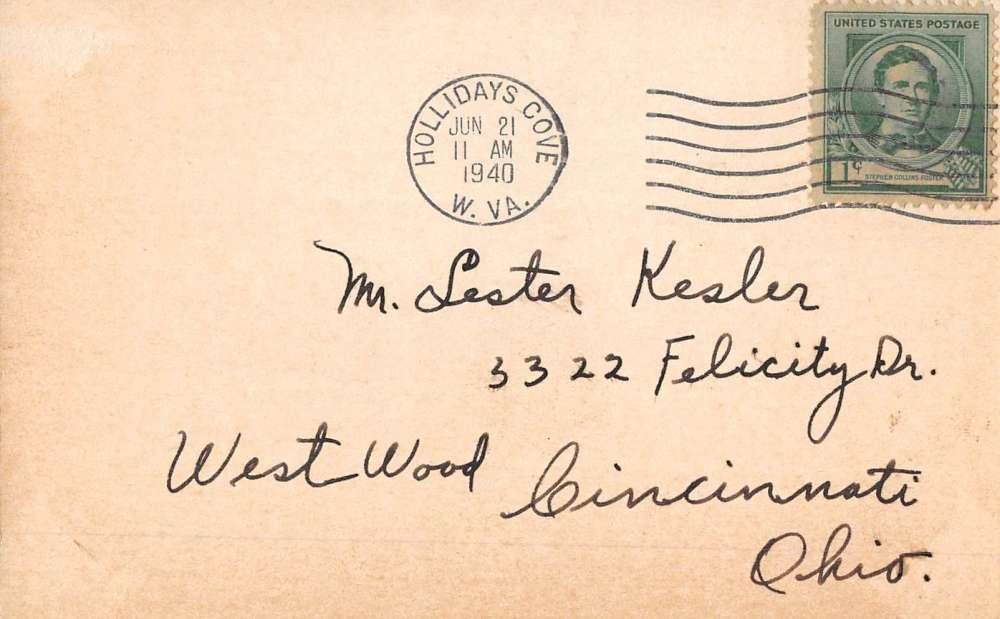 UNITED STATES POSTAGE
1¢
STEPHEN COLLINS FOSTER
HOLLIDAYS COVE
JUN 21
11 AM
1940
W. VA.
Mr. Lester Kesler
3322 Felicity Dr.
West Wood Cincinnati
Ohio.